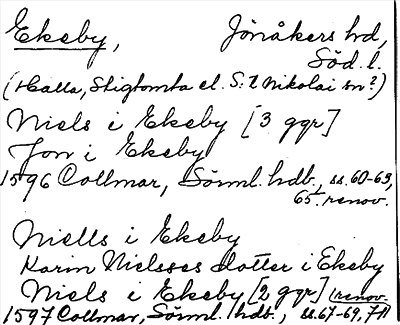 Ekeby, Jönåkers hd,
Söd. l.
(Halla, Stigtomta el. S:t Nikolai sn?)
Niels i Ekeby [3 ggr]
Jon i Ekeby
1596 Collmar, Sörml. hdb., ss. 60-63,
65. renov.
Niells i Ekeby
Karin Nielsses dotter i Ekeby
Niels i Ekeby [2 ggr] (renov.
1597 Collmar, Sörml. hdb., ss. 67-69, 71)